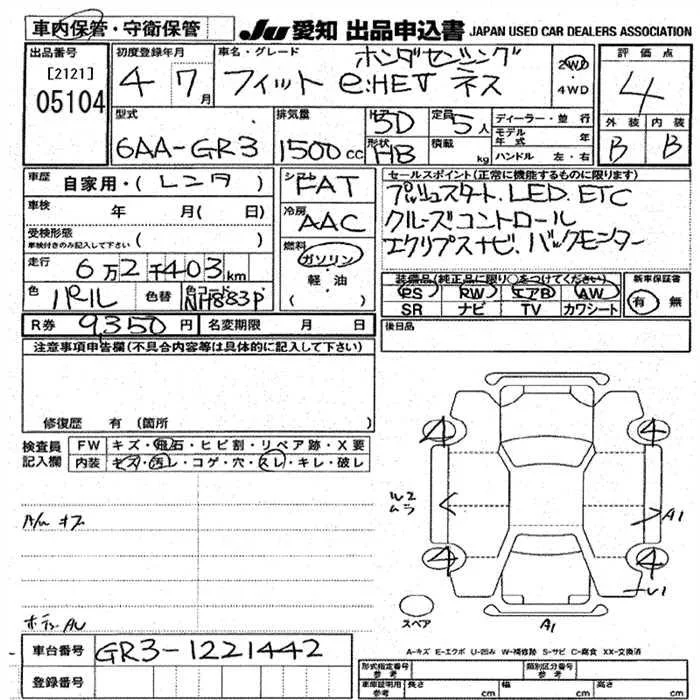 車内保管・守衛保管
JU 愛知 出品申込書 JAPAN USED CAR DEALERS ASSOCIATION
出品番号
[2121]
05104
初度登録年月
4 7月
車名・グレード
ホンダセンシング
フィット e:HEV ネス
2WD
・
4WD
評価点
4
外装 内装
B B
型式
6AA-GR3
排気量
1500cc
ドア
5D
形状
HB
定員
5人
積載
kg
ディーラー・並行
モデル年式 年
ハンドル 左・右
車歴 自家用・(レンタ)
車検 年 月( 日)
受検形態
車検付きのみ記入して下さい ( )
走行 6万2千403km
色 パール 色替 色コード NH883P
シフト FAT
冷房 AAC
燃料
ガソリン
・
軽油
( )
セールスポイント(正常に機能するものに限ります)
プッシュスタート. LED. ETC
クルーズコントロール
エクリプスナビ. バックモニター
装備品(純正品に限り○をつけてください)
PS PW エアB AW
SR ナビ TV カワシート
新車保証書
有・無
R券 9,350円 名変期限 月 日
後日品
注意事項申告欄(不具合内容等は具体的に記入して下さい)
修復歴 有(箇所 )
検査員
記入欄
FW キズ・飛石・ヒビ割・リペア跡・X要
内装 キズ・汚レ・コゲ・穴・スレ・キレ・破レ
4 4
ムラ
A1
4 4
スペア
A1
A-キズ E-エクボ U-凹み W-補修跡 S-サビ C-腐食 XX-交換済
車台番号 GR3-1221442
登録番号
形式指定番号
参考
類別区分番号
参考
車庫証明用
参考
長さ cm 幅 cm 高さ cm